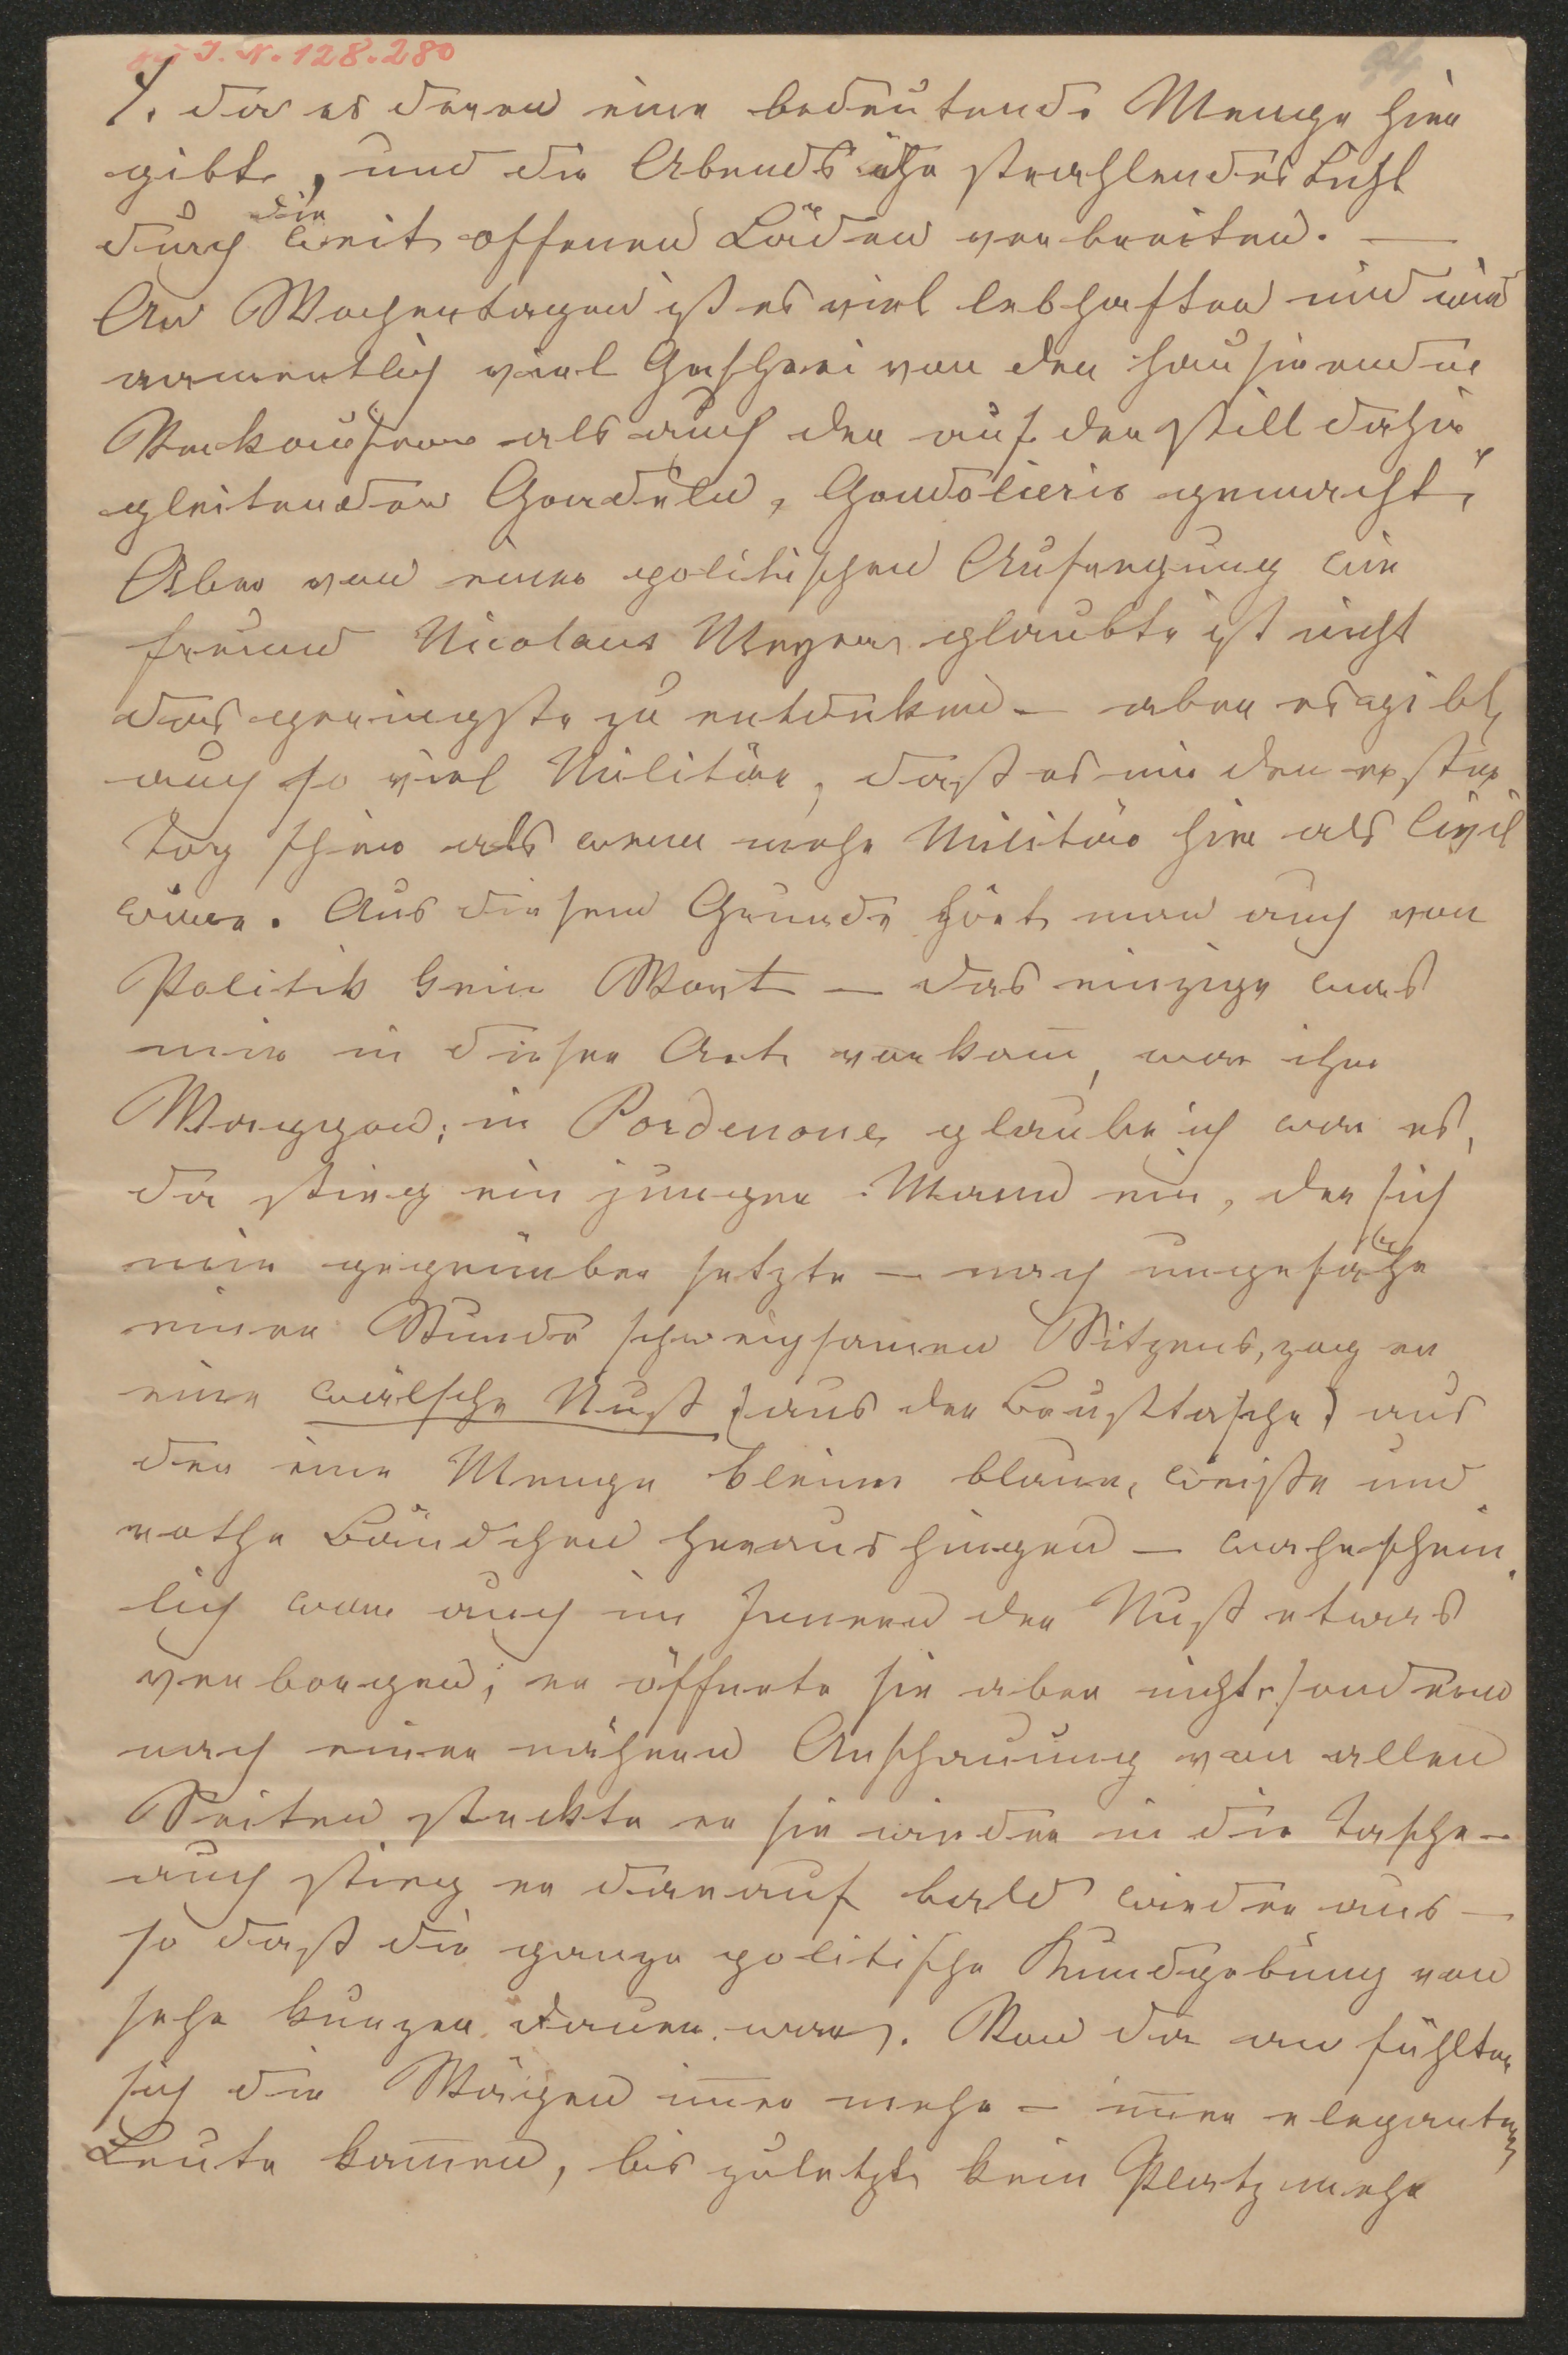 I. N. 128.280
4. da es deren eine bedeutende Menge hier
gibt, und die Abends ihr strahlendes Licht
durch die weit offenen Läden verbreiten. —
An Wochentagen ist es viel lebhafter und wird
namentlich viel Geschrei von den hausirenden
Verkäufern als auch der auf den still dahin
gleitenden Gondeln, Gondolieris gemacht,
Aber von einer politischen Aufregung wie
Freund Nicolaus Meyer glaubte ist nicht
das geringste zu entdeken — aber es gibt
auch so viel Militär, daß es mir den ersten
Tag schien als wenn mehr Militär hier als Civil
wäre. Aus diesem Grunde hört man auch von
Politik kein Wort — das einzige was
mir in dieser Art vorkam̄, war ihm
Waggon; in Pordenone glaube ich war es,
da stieg ein junger Mann ein, der sich
mir gegenüber setzte — nach ungefähr
einer Stunde schweigsamen Sitzens, zog er
eine wälsche Nuß (aus der Brusttasche) aus
der eine Menge kleine blaue, weiße und
rothe Bändchen heraushingen — wahrschein
lich war auch im Innern der Nuß etwas
verborgen; er öffnete sie aber nicht sondern
nach einer nähern Anschauung von allen
Seiten steckte er sie wieder in die Tasche —
auch stieg er darauf bald wieder aus —
so daß die ganze politische Kundgebung von
sehr kurzer Dauer war. Von da an füllten
sich die Wägen im̄er mehr — im̄er elegantere
Leute kam̄en, bis zuletzt kein Platz mehr